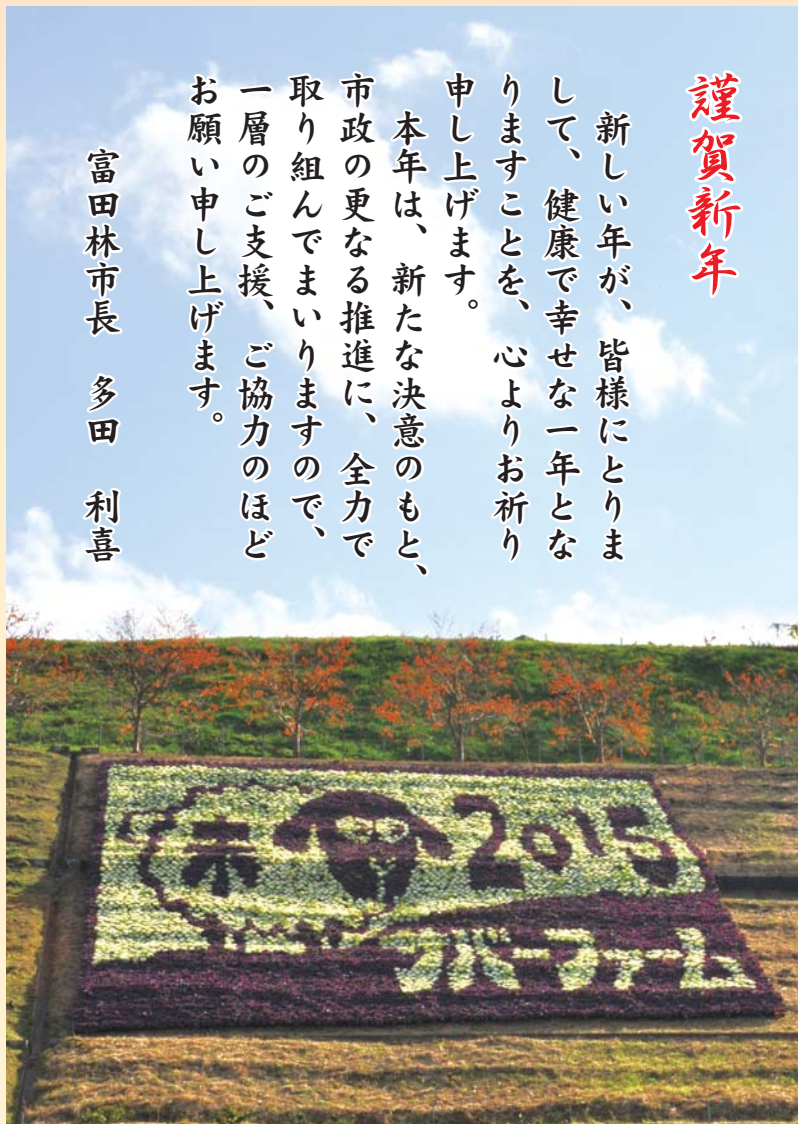 謹賀新年
新しい年が、皆様にとりま
して、健康で幸せな一年とな
りますことを、心よりお祈り
申し上げます。
本年は、新たな決意のもと、
市政の更なる推進に、全力で
取り組んでまいりますので、
一層のご支援、ご協力のほど
お願い申し上げます。
富田林市長　多田　利喜
未 2015
サバーファーム